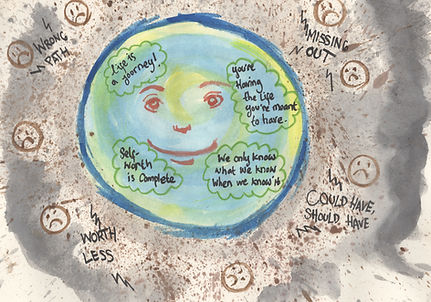 WRONG
PATH
MISSING
OUT
Life is
a journey!
you're
Having
the life
you're meant
to have.
Self-
worth
is complete
We only know
what we know
when we know it
COULD HAVE,
SHOULD HAVE
WORTH
LESS